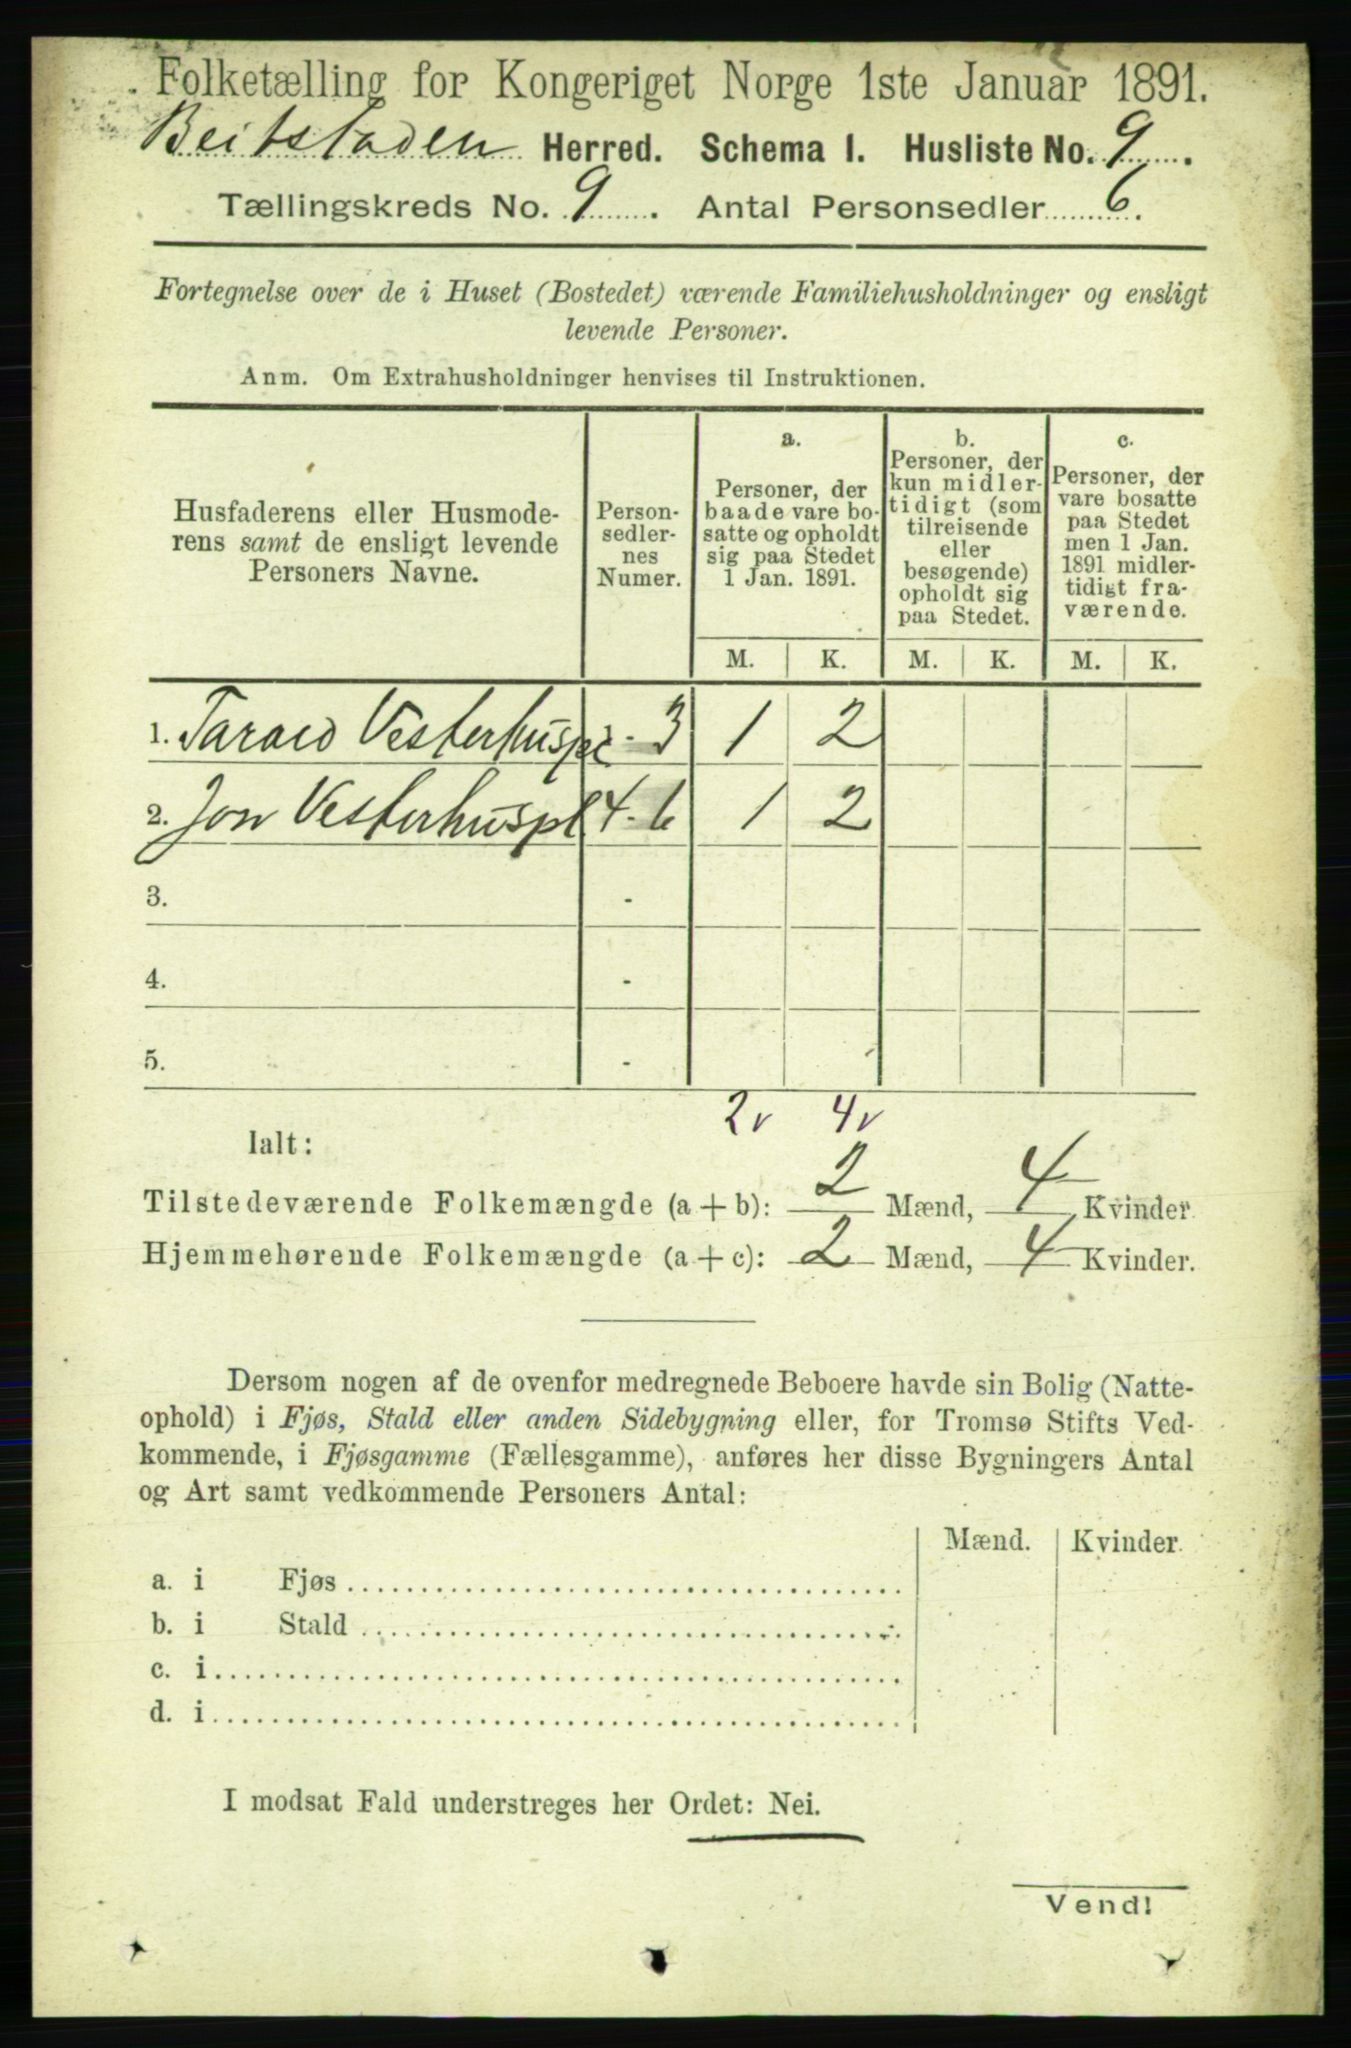 Folketælling for Kongeriget Norge 1ste Januar 1891.
Beitstaden Herred. Schema 1. Husliste No. 9.
Tællingskreds No. 9. Antal Personsedler 6.
Fortegnelse over de i Huset (Bostedet) værende Familiehusholdninger og ensligt
levende Personer.
Anm. Om Extrahusholdninger henvises til Instruktionen.
Husfaderens eller Husmode-
rens samt de ensligt levende
Personers Navne.
Person-
sedler-
nes
Numer.
a.
Personer, der
baade vare bo-
satte og opholdt
sig paa Stedet
1 Jan. 1891.
b.
Personer, der
kun midler-
tidigt (som
tilreisende
eller
besøgende)
opholdt sig
paa Stedet.
c.
Personer, der
vare bosatte
paa Stedet
men 1 Jan.
1891 midler-
tidigt fra-
værende.
M. K. M. K. M. K.
1. Vesterhuspl - 3 1 2
2. Jon Vesterhuspl 4-6 1 2
3. -
4. -
5. -
2v 4v
Ialt:
Tilstedeværende Folkemængde (a + b): 2 Mænd, 4 Kvinder.
Hjemmehørende Folkemængde (a + c): 2 Mænd, 4 Kvinder.
Dersom nogen af de ovenfor medregnede Beboere havde sin Bolig (Natte-
ophold) i Fjøs, Stald eller anden Sidebygning eller, for Tromsø Stifts Ved-
kommende, i Fjøsgamme (Fællesgamme), anføres her disse Bygningers Antal
og Art samt vedkommende Personers Antal:
Mænd. Kvinder.
a. i Fjøs
b. i Stald
c. i
d. i
I modsat Fald understreges her Ordet: Nei.
Vend!